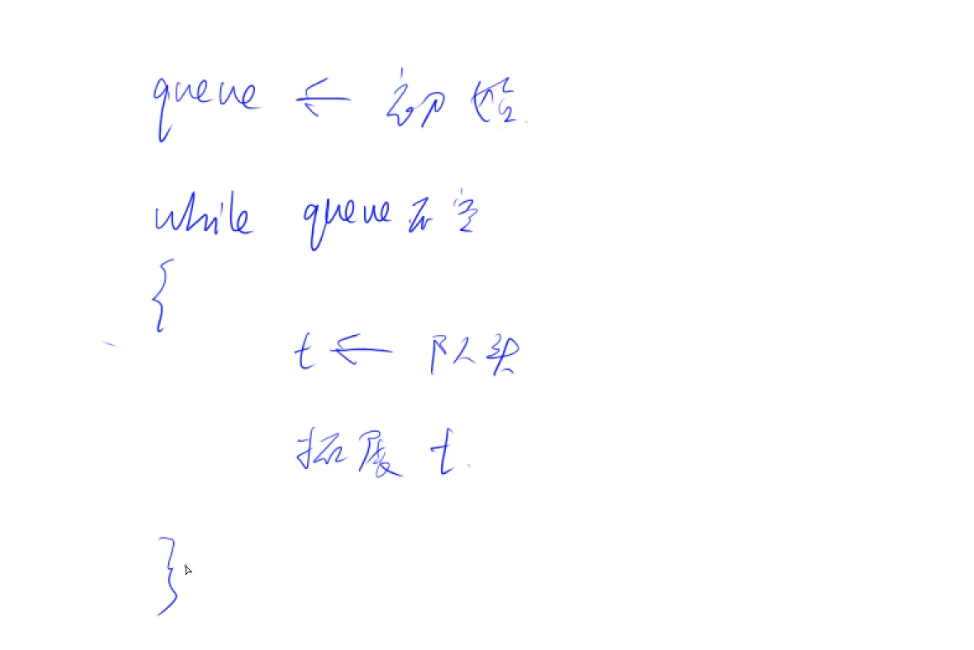 queue ← 初始
while queue 不空
{
t ← 队头
拓展 t
}